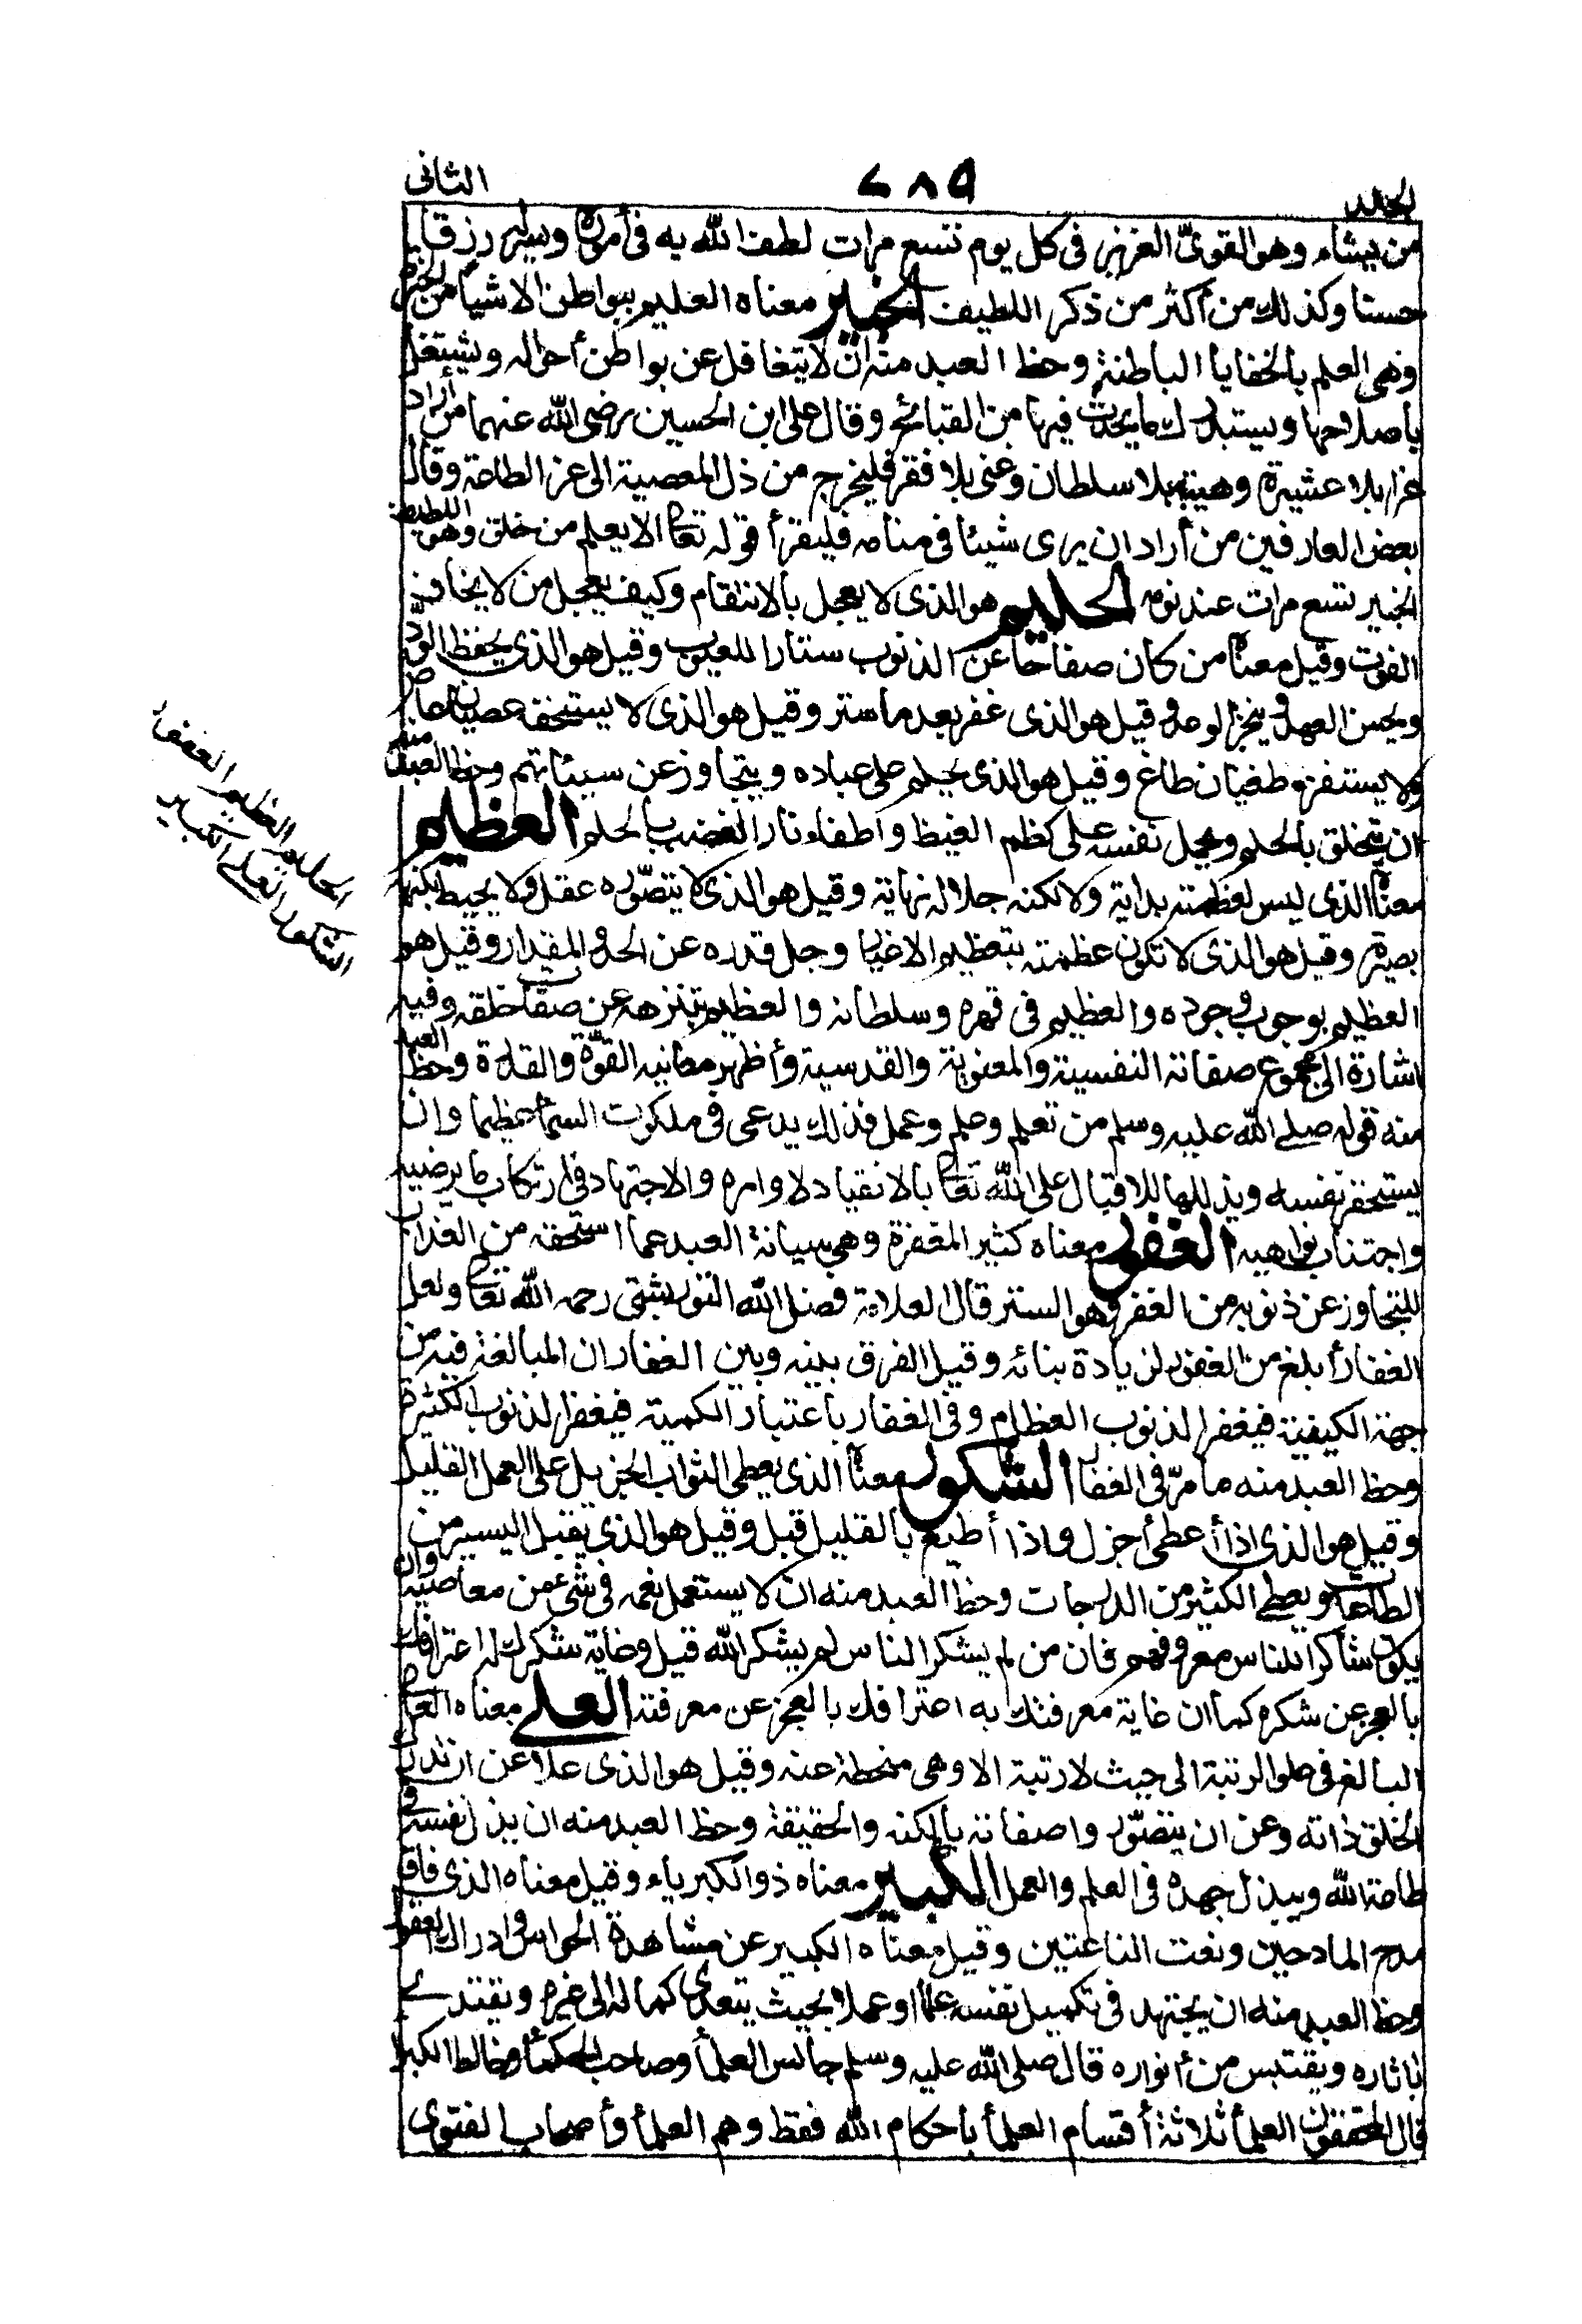 المجلد ٢٨٩ الثاني
من يشاء وهو القوىّ العزيز فى كل يوم تسع مرات لطف الله به فى أموره ويسر له رزقا
حسنا وكذلك من أكثر من ذكر اللطيف الخبير معناه العليم ببواطن الاشياء من الخبرة
وهى العلم بالخفايا الباطنة وحظ العبد منه ان لا يتغافل عن بواطن أحواله ويشتغل
باصلاحها ويستدرك ما يحدث فيها من القبائح وقال على ابن الحسين رضى الله عنهما من أراد
عزا بلا عشيرة وهيبة بلا سلطان وغنى بلا فقر فليخرج من ذل المعصية الى عز الطاعة وقال
بعض العارفين من أراد ان يرى شيئا فى منامه فليقرأ قوله تعالى الا يعلم من خلق وهو اللطيف
الخبير تسع مرات عند نومه الحليم هو الذى لا يعجل بالانتقام وكيف يعجل من لا يخاف
الفوت وقيل معناه من كان صفاحا عن الذنوب ستارا للعيوب وقيل هو الذى يحفظ الودّ
ويحسن العهد وينجز الوعد وقيل هو الذى غفر بعد ما ستر وقيل هو الذى لا يستخفه عصيان عاص
ولا يستفزه طغيان طاغ وقيل هو الذى يحلم على عباده ويتجاوز عن سيئاتهم وحظ العبد منه
ان يتخلق بالحلم ويحمل نفسه على كظم الغيظ واطفاء نار الغضب بالحلم العظيم
معناه الذى ليس لعظمته بداية ولا لكنه جلاله نهاية وقيل هو الذى لا يتصوّره عقل ولا يحيط بكنهه
بصيرة وقيل هو الذى لا تكون عظمته بتعظيم الاغيار وجل قدره عن الحد والمقدار وقيل هو
العظيم بوجوب وجوده والعظيم فى قهره وسلطانه والعظيم بتنزهه عن صفات خلقه وفيه
اشارة الى مجموع صفاته النفسية والمعنوية والقدسية وأظهر معانيه القوّة والقدرة وحظ العبد
منه قوله صلى الله عليه وسلم من تعلم وعلم وعمل فذلك يدعى فى ملكوت السماء عظيما وان
يستحقر نفسه ويذللها للاقبال على الله تعالى بالانقياد لاوامره والاجتهاد فى ارتكاب ما يرضيه
واجتناب نواهيه الغفور معناه كثير المغفرة وهى صيانة العبد عما استحقه من العذاب
للتجاوز عن ذنوبه من الغفر وهو الستر قال العلامة فضل الله التوربشتى رحمه الله تعالى ولعل
الغفار أبلغ من الغفور لزيادة بنائه وقيل الفرق بينه وبين الغفار ان المبالغة فيه من
جهة الكيفية فيغفر الذنوب العظام وفى الغفار باعتبار الكمية فيغفر الذنوب الكثيرة
وحظ العبد منه ما مرّ فى الغفار الشكور معناه الذى يعطى الثواب الجزيل على العمل القليل
وقيل هو الذى اذا أعطى أجزل واذا أطيع بالقليل قبل وقيل هو الذى يقبل اليسير من
الطاعات ويعطى الكثير من الدرجات وحظ العبد منه ان لا يستعمل نعمه فى شئ من معاصيه وان
يكون شاكرا للناس معروفهم فان من لم يشكر الناس لم يشكر الله قيل وغاية شكرك له اعترافك
بالعجز عن شكره كما ان غاية معرفتك به اعترافك بالعجز عن معرفته العلى معناه العالى
البالغ فى علو الرتبة الى حيث لا رتبة الا وهى منحطة عنه وقيل هو الذى علا عن ان تدرك
الخلق ذاته وعن ان يتصوّر واصفاته بالكنه والحقيقة وحظ العبد منه ان يذل نفسه فى
طاعة الله ويبذل جهده فى العلم والعمل الكبير معناه ذو الكبرياء وقيل معناه الذى فاق
مدح المادحين ونعت الناعتين وقيل معناه الكبير عن مشاهدة الحواس وادراك العقول
وحظ العبد منه ان يجتهد فى تكميل نفسه علما وعملا بحيث يتعدى كماله الى غيره ويقتدى
باثاره ويقتبس من أنواره قال صلى الله عليه وسلم جالس العلماء وصاحب الحكماء وخالط الكبراء
قال المحققون العلماء ثلاثة أقسام العلماء بأحكام الله فقط وهم العلماء وأصحاب الفتوى
الحليم العظيم الغفور
الشكور العلى الكبير